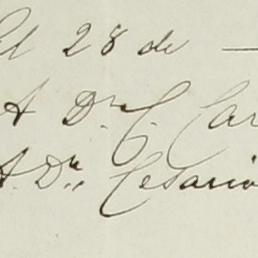 El 28 de —
A Dn C. Car
A Dn Cesario